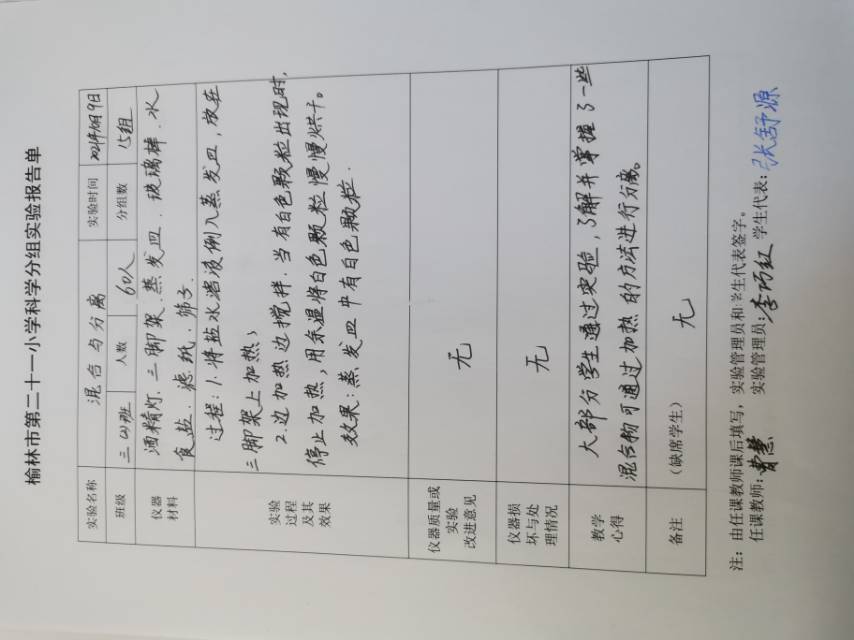 榆林市第二十一小学科学分组实验报告单
实验名称 混合与分离 实验时间 9日
班级 三(2)班 人数 60人 分组数 15组
仪器材料 酒精灯、三脚架、蒸发皿、玻璃棒、水
食盐、滤纸、筛子
实验过程及其效果 过程:1.将盐水溶液倒入蒸发皿,放在
三脚架上加热;
2.边加热边搅拌.当有白色颗粒出现时,
停止加热,用余温将白色颗粒慢慢烘干。
效果:蒸发皿中有白色颗粒.
仪器质量或实验改进意见 无
仪器损坏与处理情况 无
教学心得 大部分学生通过实验,了解并掌握了一些
混合物可通过加热的方法进行分离。
备注 (缺席学生) 无
注:由任课教师课后填写,实验管理员和学生代表签字。
任课教师:曹慧 实验管理员:李巧红 学生代表:张舒源